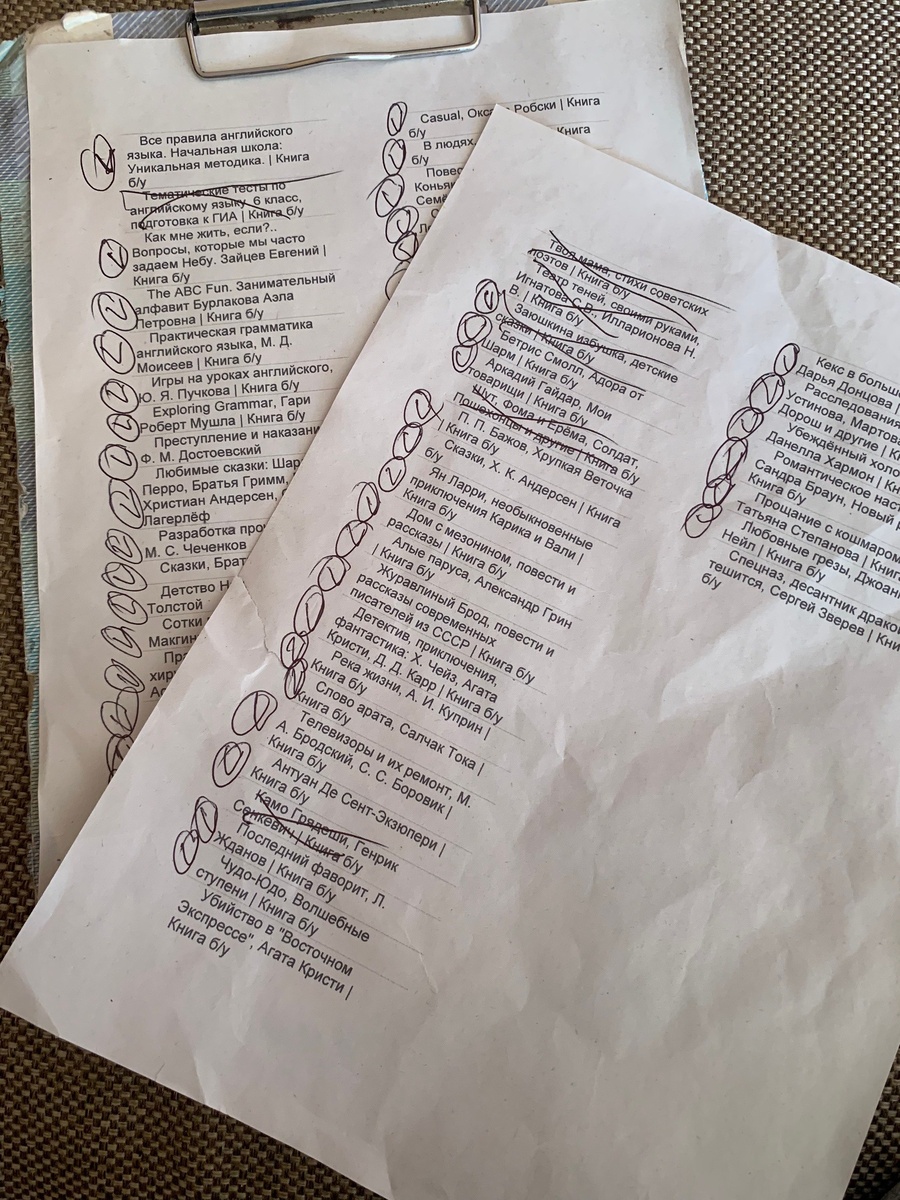 Все правила английского
языка. Начальная школа:
Уникальная методика. | Книга
б/у
Тематические тесты по
английскому языку, 6 класс,
подготовка к ГИА | Книга б/у
Как мне жить, если?..
Вопросы, которые мы часто
задаем Небу. Зайцев Евгений |
Книга б/у
The ABC Fun. Занимательный
алфавит Бурлакова Аэла
Петровна | Книга б/у
Практическая грамматика
английского языка, М. Д.
Моисеев | Книга б/у
Игры на уроках английского,
Ю. Я. Пучкова | Книга б/у
Exploring Grammar, Гари
Роберт Мушла | Книга б/у
Преступление и наказани
Ф. М. Достоевский
Любимые сказки: Шар
Перро, Братья Гримм,
Христиан Андерсен,
Лагерлёф
Разработка про
М. С. Чеченков
Сказки, Брат
Детство Н
Толстой
Сотки
Макгин
Пр
хиру
Casual, Окс Робски | Книга
б/у
В людях, Книга
б/у
Повес
Коньяк
Семё
Твоя мама, стихи советских
поэтов | Книга б/у
Театр теней, своими руками,
Игнатова С.В., Илларионова Н.
В. | Книга б/у
Заюшкина избушка, детские
сказки | Книга б/у
Бетрис Смолл, Адора от
Шарм | Книга б/у
Аркадий Гайдар, Мои
товарищи | Книга б/у
Шут, Фома и Ерёма, Солдат,
Пошехонцы и другие | Книга б/у
П. П. Бажов, Хрупкая Веточка
| Книга б/у
Сказки, Х. К. Андерсен | Книга
б/у
Ян Ларри, необыкновенные
приключения Карика и Вали |
Книга б/у
Дом с мезонином, повести и
рассказы | Книга б/у
Алые паруса, Александр Грин
| Книга б/у
Журавлиный Брод, повести и
рассказы современных
писателей из СССР | Книга б/у
Детектив, приключения,
фантастика: Х. Чейз, Агата
Кристи, Д. Д. Карр | Книга б/у
Река жизни, А. И. Куприн |
Книга б/у
Слово арата, Салчак Тока |
Книга б/у
Телевизоры и их ремонт, М.
А. Бродский, С. С. Боровик |
Книга б/у
Антуан Де Сент-Экзюпери |
Книга б/у
Камо Грядеши, Генрик
Сенкевич | Книга б/у
Последний фаворит, Л.
Жданов | Книга б/у
Чудо-Юдо, Волшебные
ступени | Книга б/у
Убийство в "Восточном
Экспрессе", Агата Кристи |
Книга б/у
Кекс в больш
Дарья Донцова |
Расследования
Устинова, Мартова
Дорош и другие | К
Убеждённый холо
Данелла Хармон | Кн
Романтическое наст
Сандра Браун, Новый р
Книга б/у
Прощание с кошмаром
Татьяна Степанова | Книга
Любовные грезы, Джоан
Нейл | Книга б/у
Спецназ, десантник драко
тешится, Сергей Зверев | Кни
б/у